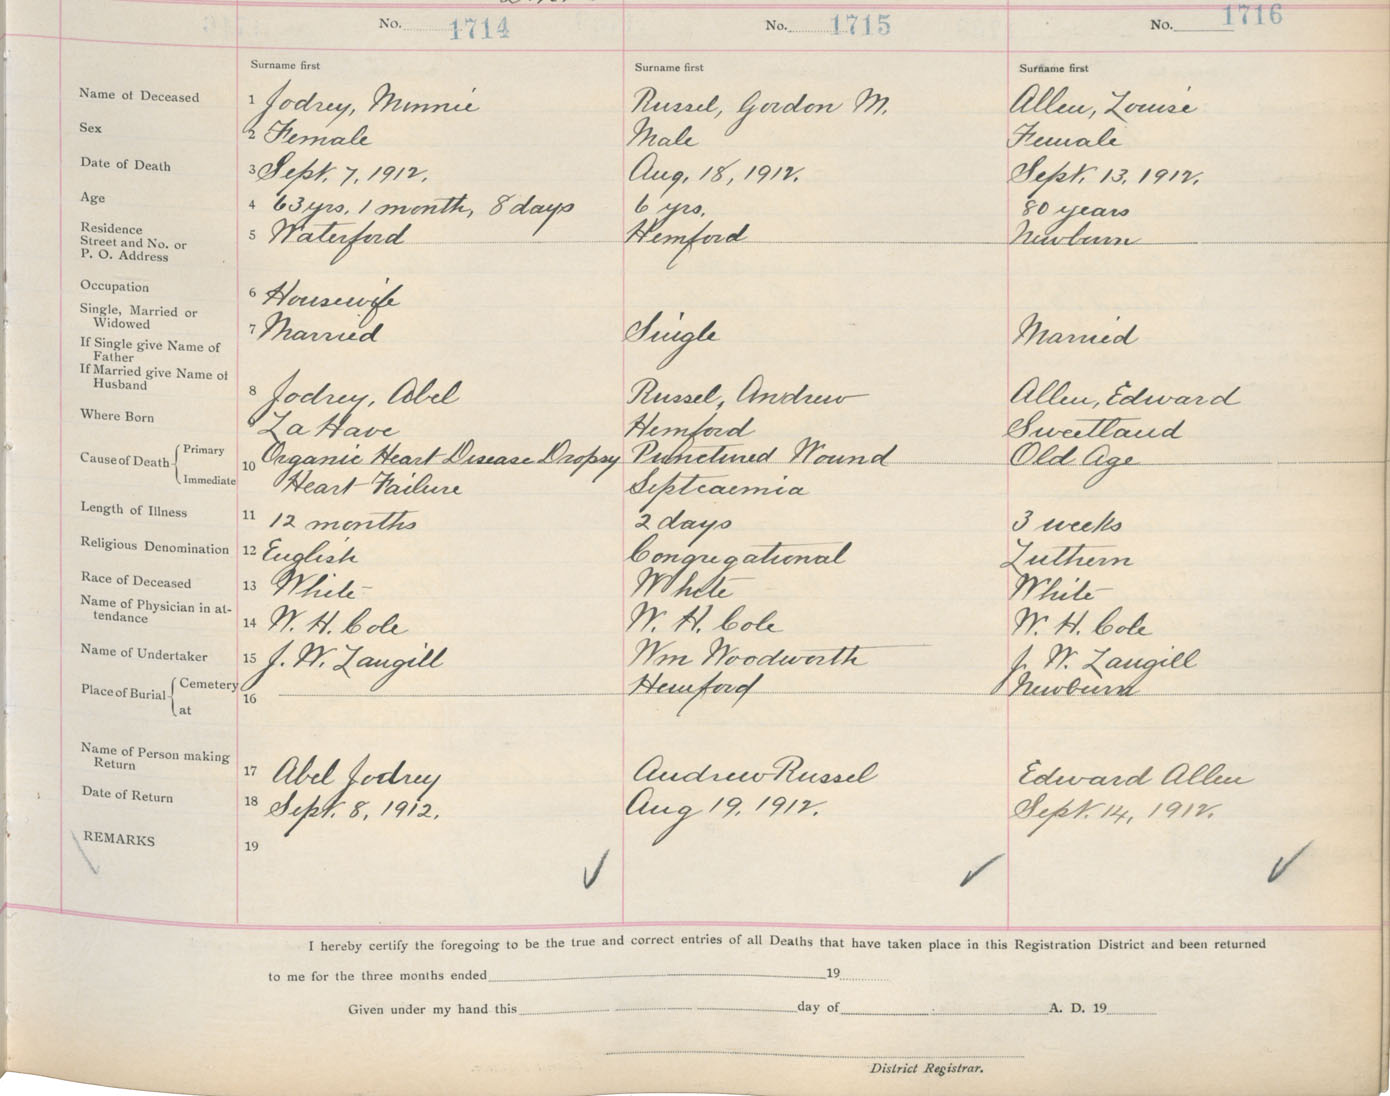 No. 1714 No. 1715 No. 1716
Surname first Surname first Surname first
Name of Deceased 1 Jodrey, Minnie Russel, Gordon M. Allen, Louise
Sex 2 Female Male Female
Date of Death 3 Sept. 7, 1912. Aug. 18, 1912. Sept. 13, 1912.
Age 4 63 yrs. 1 month, 8 days 6 yrs. 80 years
Residence
Street and No. or
P. O. Address 5 Waterford Hemford Newburn
Occupation 6 Housewife
Single, Married or
Widowed 7 Married Single Married
If Single give Name of
Father
If Married give Name of
Husband 8 Jodrey, Abel Russel, Andrew Allen, Edward
Where Born La Have Hemford Sweetland
Cause of Death Primary 10 Organic Heart Disease Dropsy Punctured Wound Old Age
Immediate Heart Failure Septcaemia
Length of Illness 11 12 months 2 days 3 weeks
Religious Denomination 12 English Congregational Luthern
Race of Deceased 13 White White White
Name of Physician in at-
tendance 14 W. H. Cole W. H. Cole W. H. Cole
Name of Undertaker 15 J. W. Langill Wm Woodworth J. W. Langill
Place of Burial Cemetery 16 Hemford Newburn
at
Name of Person making
Return 17 Abel Jodrey Andrew Russel Edward Allen
Date of Return 18 Sept. 8, 1912. Aug 19, 1912. Sept. 14, 1912.
REMARKS 19
I hereby certify the foregoing to be the true and correct entries of all Deaths that have taken place in this Registration District and been returned
to me for the three months ended 19
Given under my hand this day of A. D. 19
District Registrar.